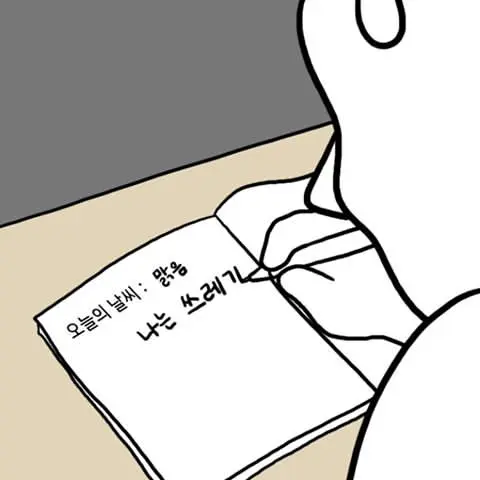 오늘의 날씨 : 맑음
나는 쓰레기